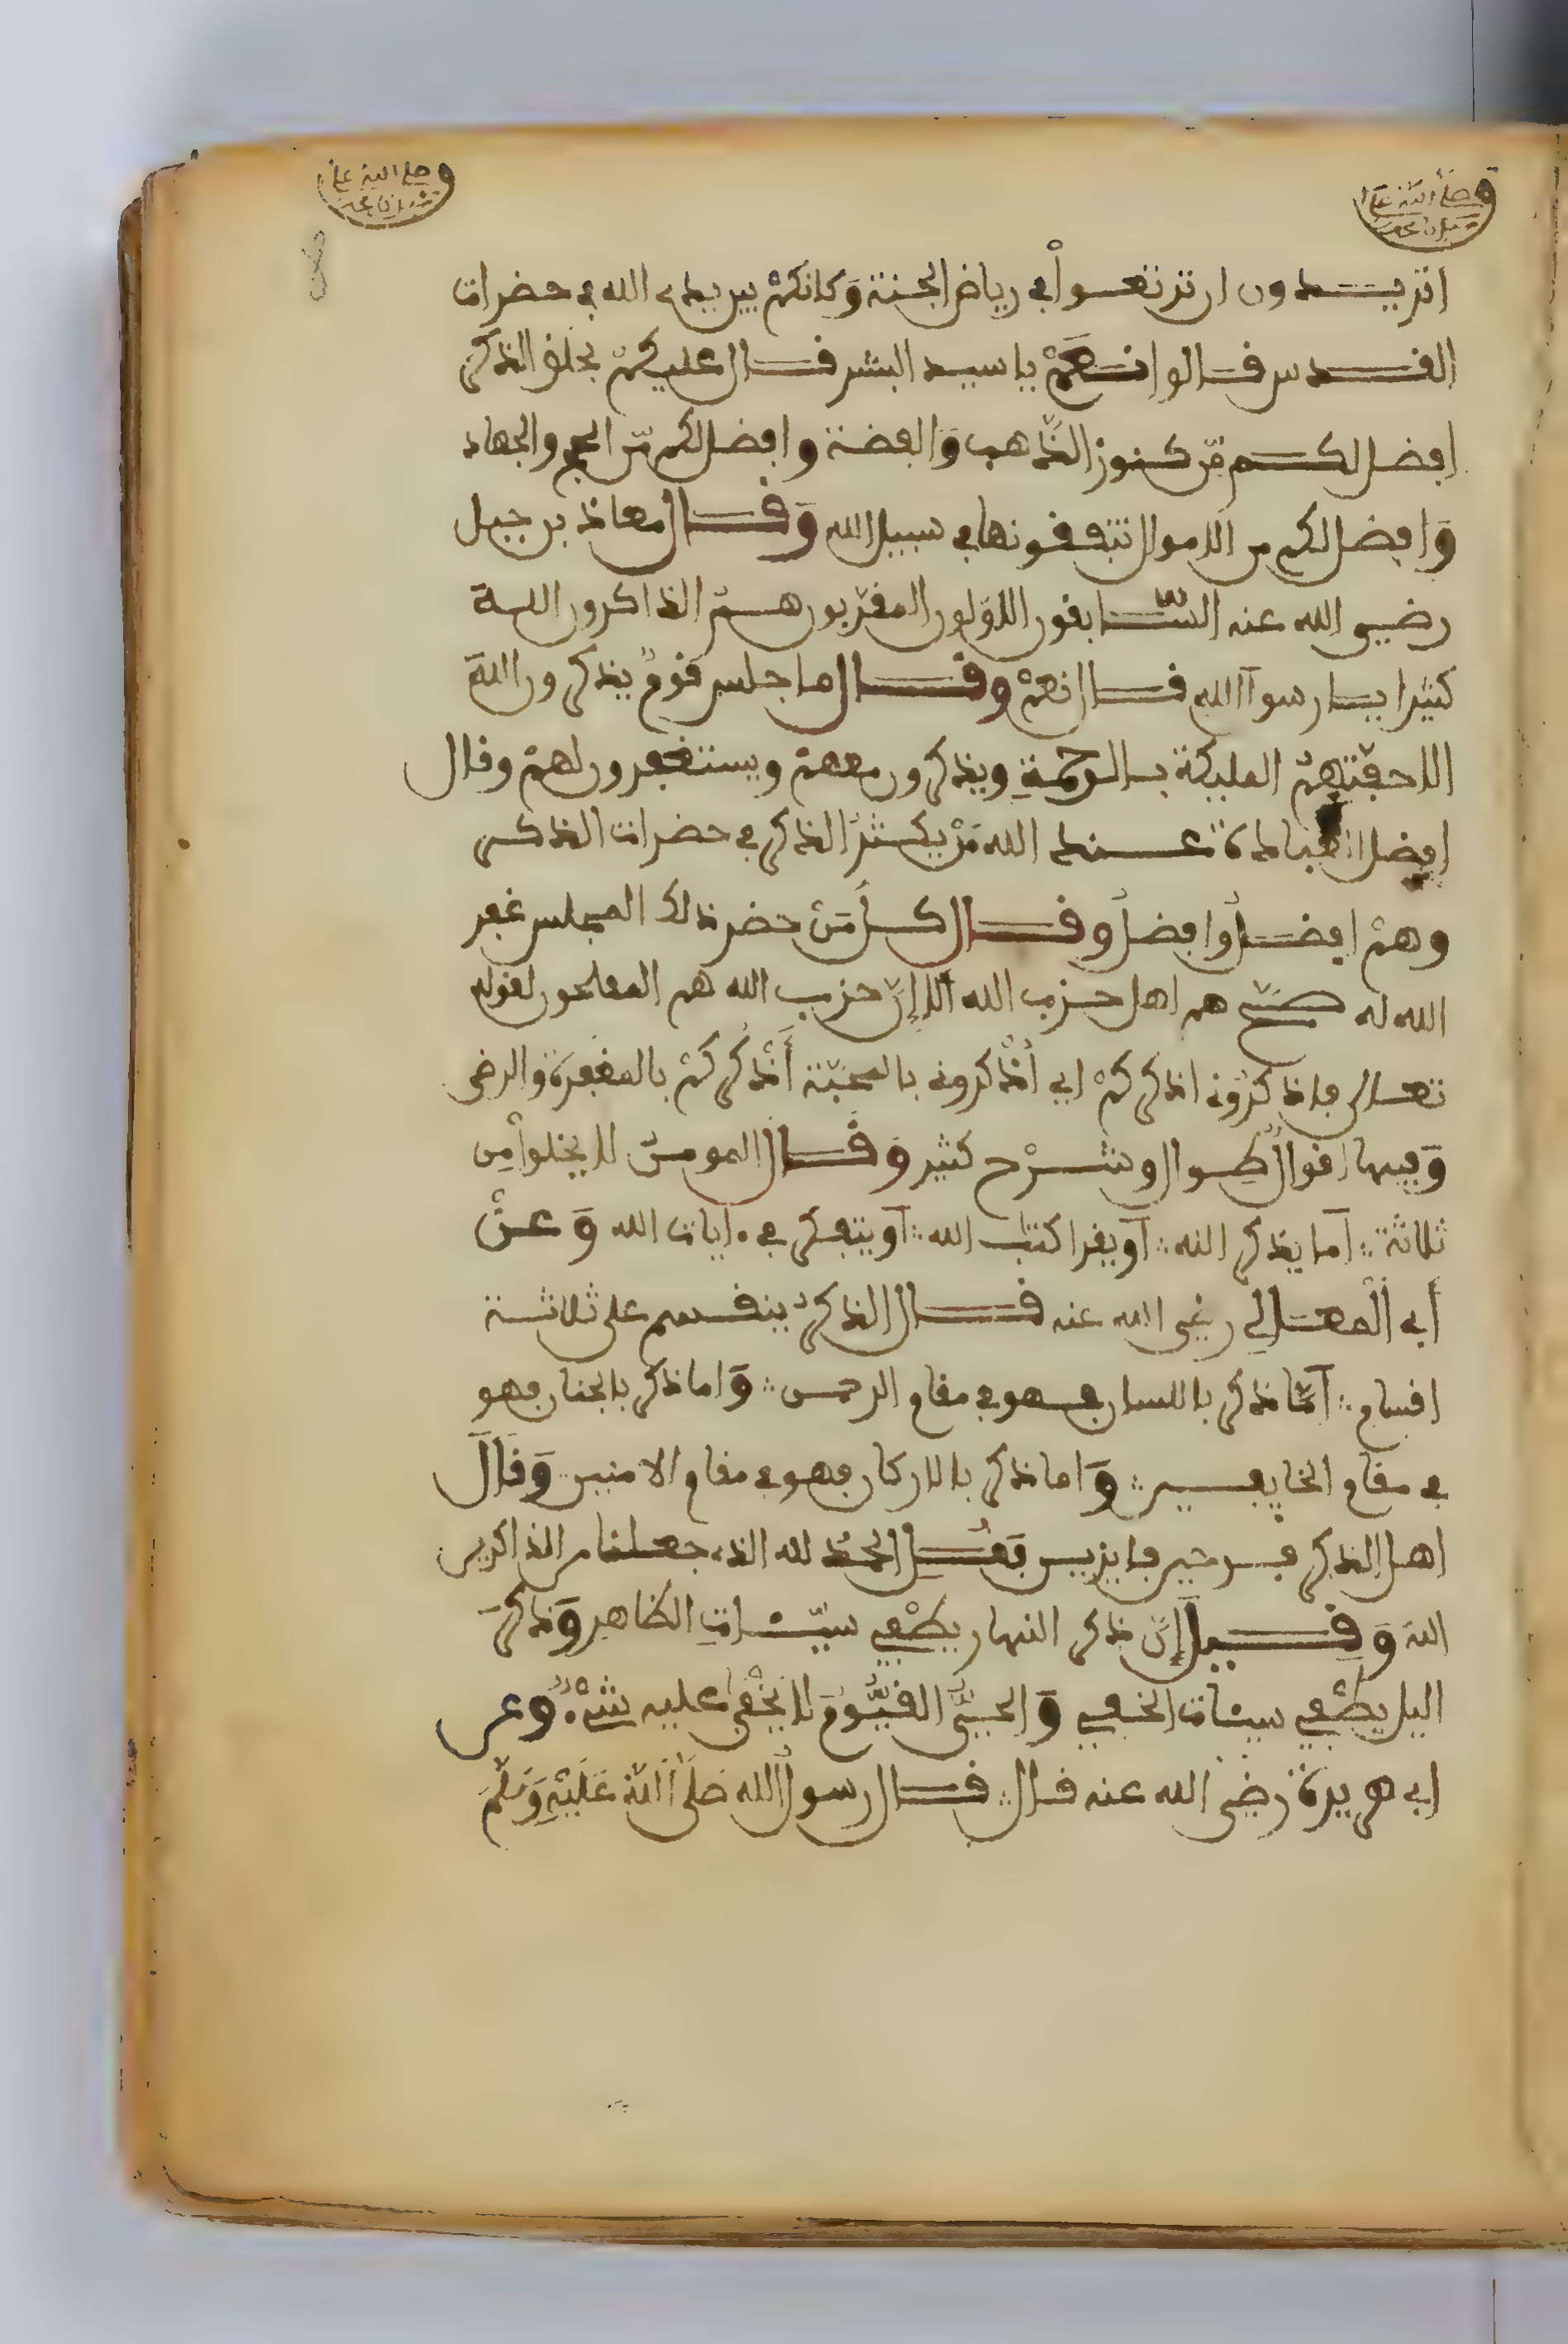 وصلى الله على سيدنا محمد
وصلى الله على سيدنا محمد
اتريدون ان ترتعوا في رياض الجنة وكانكم بين يدي الله في حضرات
القدس قالوا نعم يا سيد البشر قال عليكم بحلق الذكر
افضل لكم من كنوز الذهب والفضة وافضل لكم من الحج والجهاد
وافضل لكم من الاموال تنفقونها في سبيل الله وقال معاذ بن جبل
رضي الله عنه السابقون الاولون المقربون هم الذاكرون الله
كثيرا يا رسول الله قال نعم وقال ما جلس قوم يذكرون الله
الا حفتهم المليكة بالرحمة ويذكرون معهم ويستغفرون لهم وقال
افضل العبادة عند الله من يكثر الذكر في حضرات الذكر
وهم افضل وافضل وقال كل من حضر ذلك المجلس غفر
الله له صح هم اهل حزب الله الا إن حزب الله هم المفلحون لقوله
تعالى فاذكروني اذكركم اي أذكروني بالمحبة أذكركم بالمغفرة والرضى
وفيها اقوال طوال وشرح كثير وقال المومن لا يخلوا من
ثلاثة اما يذكر الله او يقرا كتب الله او يتفكر في ءايات الله وعن
أبي المعالي رضي الله عنه قال الذكر ينقسم على ثلاثة
اقسام اما ذكر باللسان فهو في مقام الرحمن واما ذكر بالجنان فهو
في مقام الخايفين واما ذكر بالاركان فهو في مقام الامنين وقال
اهل الذكر فرحين فايزين فقل الحمد لله الذي جعلنا من الذاكرين
الله وقيل إن ذكر النهار يطفي سيئات الظاهر وذكر
اليل يطفي سيئات الخفي والحي القيوم لا يخفى عليه شيء وعن
ابي هريرة رضي الله عنه قال قال رسول الله صلى الله عليه وسلم